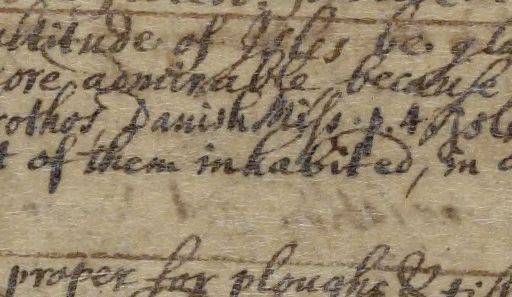 ultitude of Isles be glo
ore admirable, because
rothos, Danish Miss. p. 4
t of them inhabited, in
proper for ploughs &